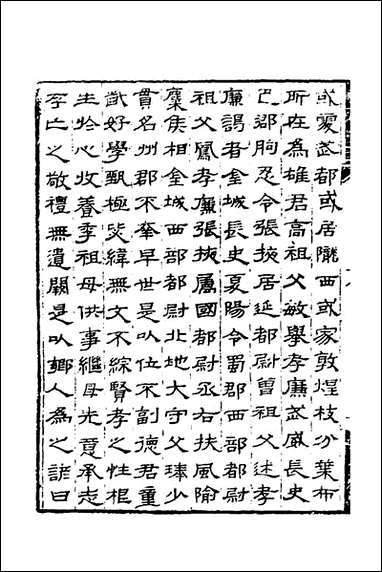 或處武都或居隴西或家敦煌枝分葉布
所在爲雄君高祖父敏舉孝廉武威長史
巴郡朐忍令張掖居延都尉曾祖父述孝
廉謁者金城長史夏陽令蜀郡西部都尉
祖父鳳孝廉張掖屬國都尉丞右扶風隃
麋侯相金城西部都尉北地大守父琫少
貫名州郡不幸早世是以位不副德君童
齔好學甄極毖緯無文不綜賢孝之性根
生於心收養季祖母供事繼母先意承志
存亡之敬禮無遺闕是以鄉人爲之諺曰